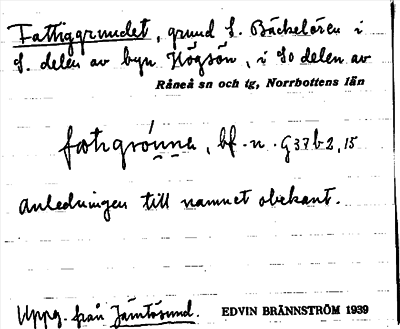 Fattiggrundet, grund S. Bäckelören i
S. delen av byn Högsön, i SO delen av
Råneå sn och tg, Norrbottens län
bf. n. G37b2,15
Anledningen till namnet obekant.
Uppg. från Jämtösund. EDVIN BRÄNNSTRÖM 1939